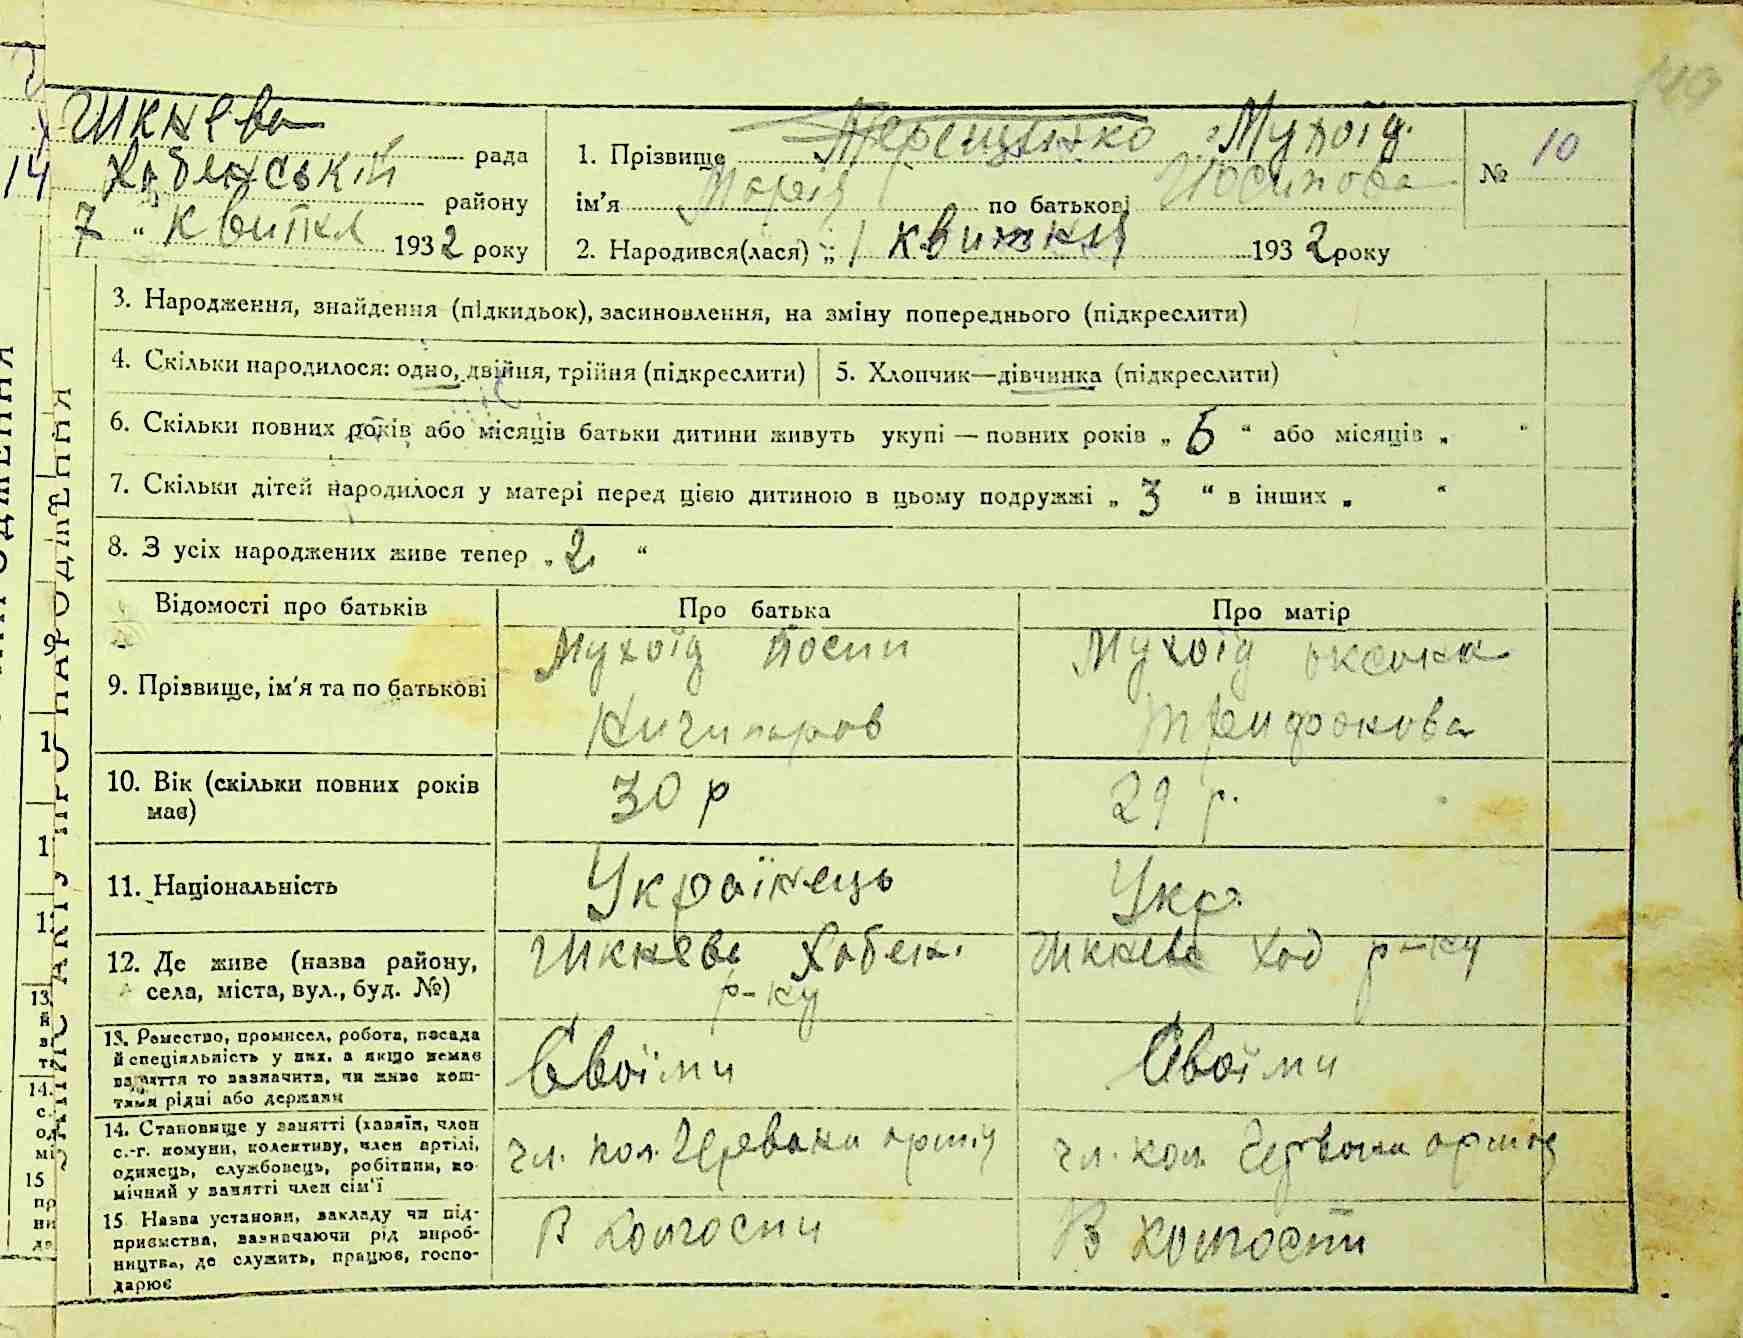 149
Шкнєва рада
14 Хабенський району
7 " Квітня 1932 року
1. Прізвище Терещенко Мухоїд.
№ 10
ім'я Марія по батькові Йосипова
2. Народився(лася) „ 1 квітня 1932 року
3. Народження, знайдення (підкидьок), засиновлення, на зміну попереднього (підкреслити)
4. Скільки народилося: одно, двійня, трійня (підкреслити)
5. Хлопчик—дівчинка (підкреслити)
6. Скільки повних років або місяців батьки дитини живуть укупі — повних років „ 6 " або місяців „ "
7. Скільки дітей народилося у матері перед цією дитиною в цьому подружжі „ 3 " в інших „ "
8. З усіх народжених живе тепер „ 2 "
ЗАПИС АКТУ ПРО НАРОДЖЕННЯ
Відомості про батьків
Про батька
Про матір
9. Прізвище, ім'я та по батькові
Мухоїд Йосип
Ничипоров
Мухоїд оксана
Трифонова
10. Вік (скільки повних років
має)
30 р
29 р.
11. Національність
Українець
Укр.
12. Де живе (назва району,
села, міста, вул., буд. №)
Шкнєва Хабен.
р-ку
Шкнєва Хаб р-ку
13. Ремество, промисел, робота, посада
й спеціяльність у них, а якщо немає
заняття то зазначити, чи живе кош-
тами рідні або держави
Своїми
Своїми
14. Становище у занятті (хазяїн, член
с.-г. комуни, колективу, член артілі,
одинець, службовець, робітник, по-
мічний у занятті член сім'ї
чл. кол. Червона армія
чл. кол. Червона армія
15. Назва установи, закладу чи під-
приємства, зазначаючи рід вироб-
ництва, де служить, працює, госпо-
дарює
В колгоспи
В колгоспи